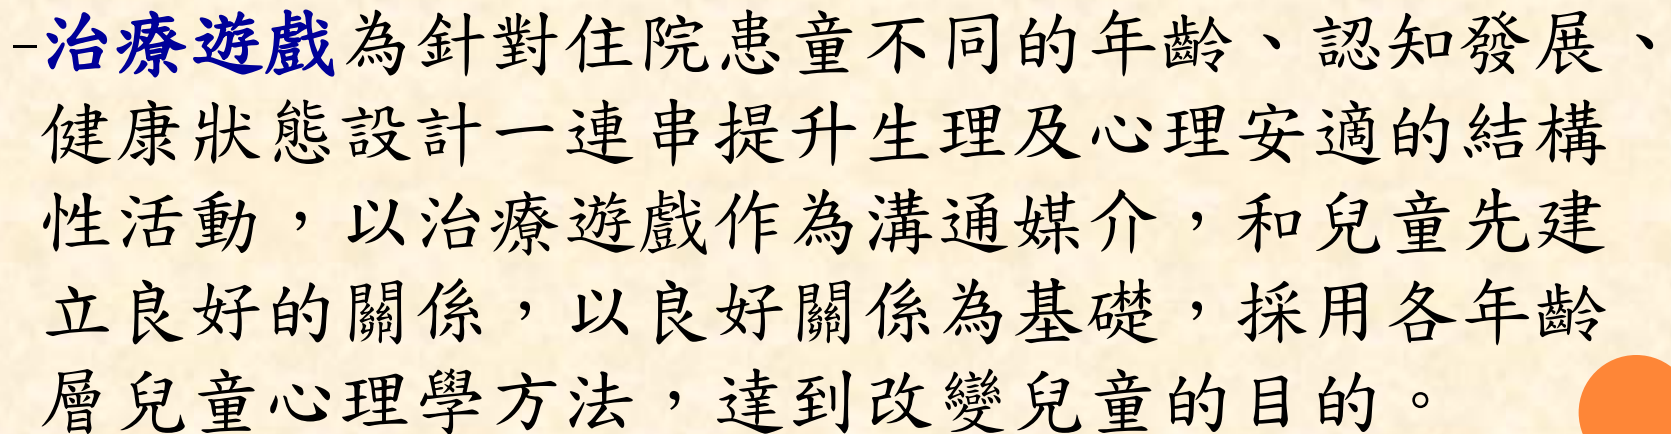 -治療遊戲為針對住院患童不同的年齡、認知發展、
健康狀態設計一連串提升生理及心理安適的結構
性活動，以治療遊戲作為溝通媒介，和兒童先建
立良好的關係，以良好關係為基礎，採用各年齡
層兒童心理學方法，達到改變兒童的目的。